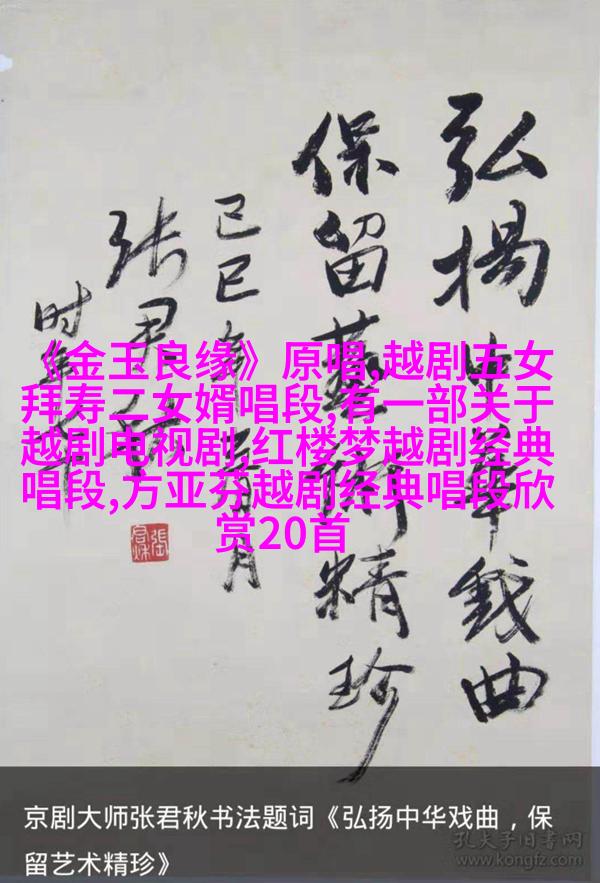 弘揚中華戲曲
保留藝術精珍
己巳年
月
张君秋
时年
《金玉良缘》原唱,越剧五女
拜寿二女婿唱段,有一部关于
越剧电视剧,红楼梦越剧经典
唱段,方亚芬越剧经典唱段欣
赏20首
京剧大师张君秋书法题词《弘扬中华戏曲，保
留艺术精珍》
孔夫子旧书网
www.kongfz.com